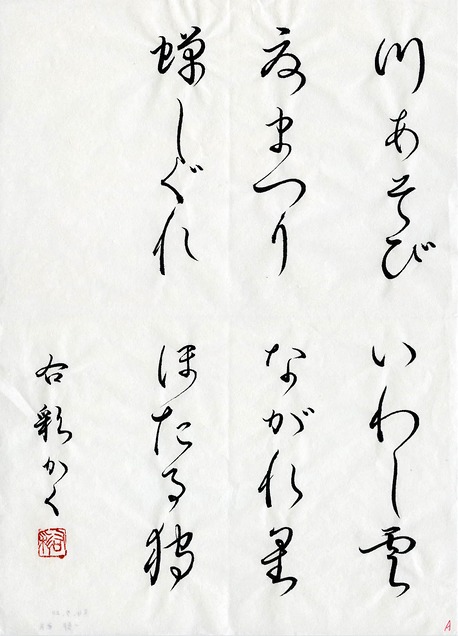 川あそび いわし雲
夏まつり ながれ星
蝉しぐれ ほたる狩
彩かく
A